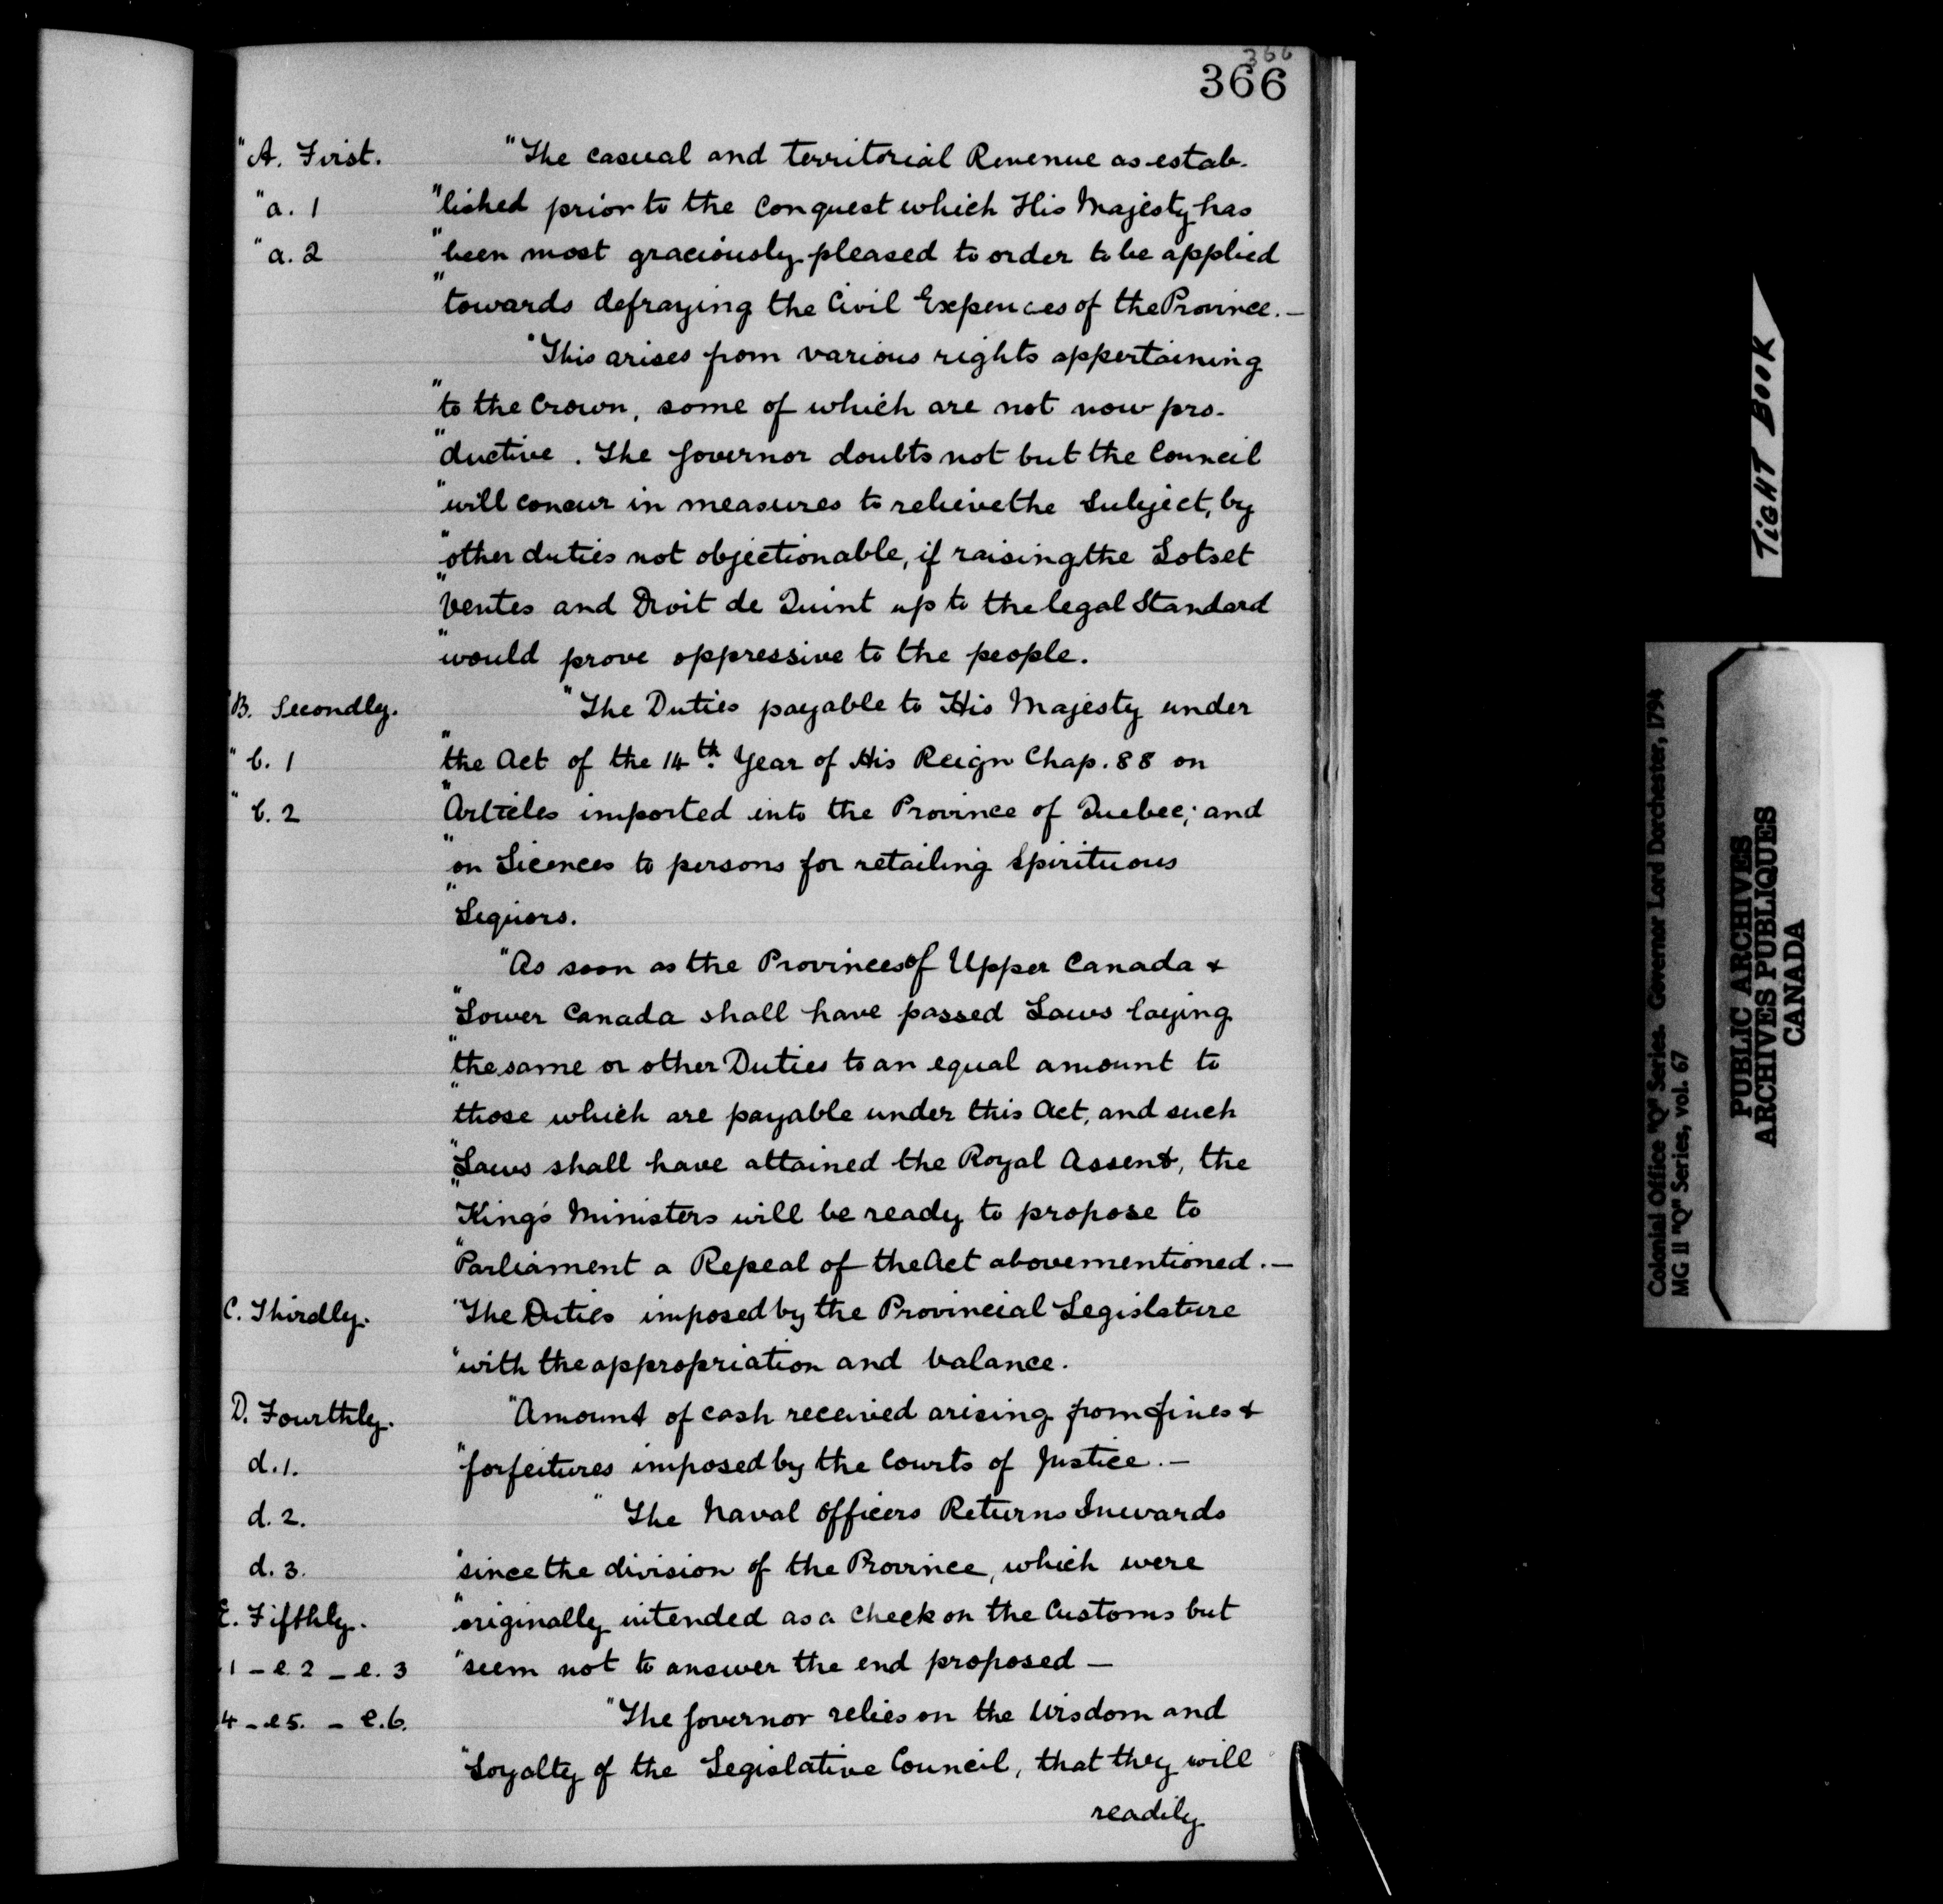 366
366
"A. First. "The casual and territorial Revenue as estab-
"a. 1 "lished prior to the Conquest which His Majesty has
"a. 2 "been most graciously pleased to order to be applied
"towards defraying the Civil Expences of the Province. —
"This arises from various rights appertaining
"to the Crown, some of which are not now pro-
"ductive. The Governor doubts not but the Council
"will concur in measures to relieve the Subject, by
"other duties not objectionable, if raising the Lots et
"Ventes and Droit de Quint up to the legal Standard
"would prove oppressive to the people.
"B. Secondly. "The Duties payable to His Majesty under
"b. 1 "the Act of the 14th. Year of His Reign Chap. 88 on
"b. 2 "Articles imported into the Province of Quebec; and
"on Licences to persons for retailing Spirituous
"Liquors.
"As soon as the Provinces of Upper Canada &
"Lower Canada shall have passed Laws laying
"the same or other Duties to an equal amount to
"those which are payable under this Act, and such
"Laws shall have attained the Royal Assent, the
"King's Ministers will be ready to propose to
"Parliament a Repeal of the Act abovementioned. —
C. Thirdly. "The Duties imposed by the Provincial Legislature
"with the appropriation and balance.
D. Fourthly. "Amount of cash received arising from fines &
d. 1. "forfeitures imposed by the Courts of Justice. —
d. 2. "The Naval Officers Returns Inwards
d. 3. "since the division of the Province, which were
E. Fifthly. "originally intended as a check on the Customs but
1 – e. 2 – e. 3 "seem not to answer the end proposed —
4 – e 5. – e. 6. "The Governor relies on the Wisdom and
"Loyalty of the Legislative Council, that they will
readily
TIGHT BOOK
Colonial Office "Q" Series. Governor Lord Dorchester, 1794
MG 11 "Q" Series, vol. 67
PUBLIC ARCHIVES
ARCHIVES PUBLIQUES
CANADA